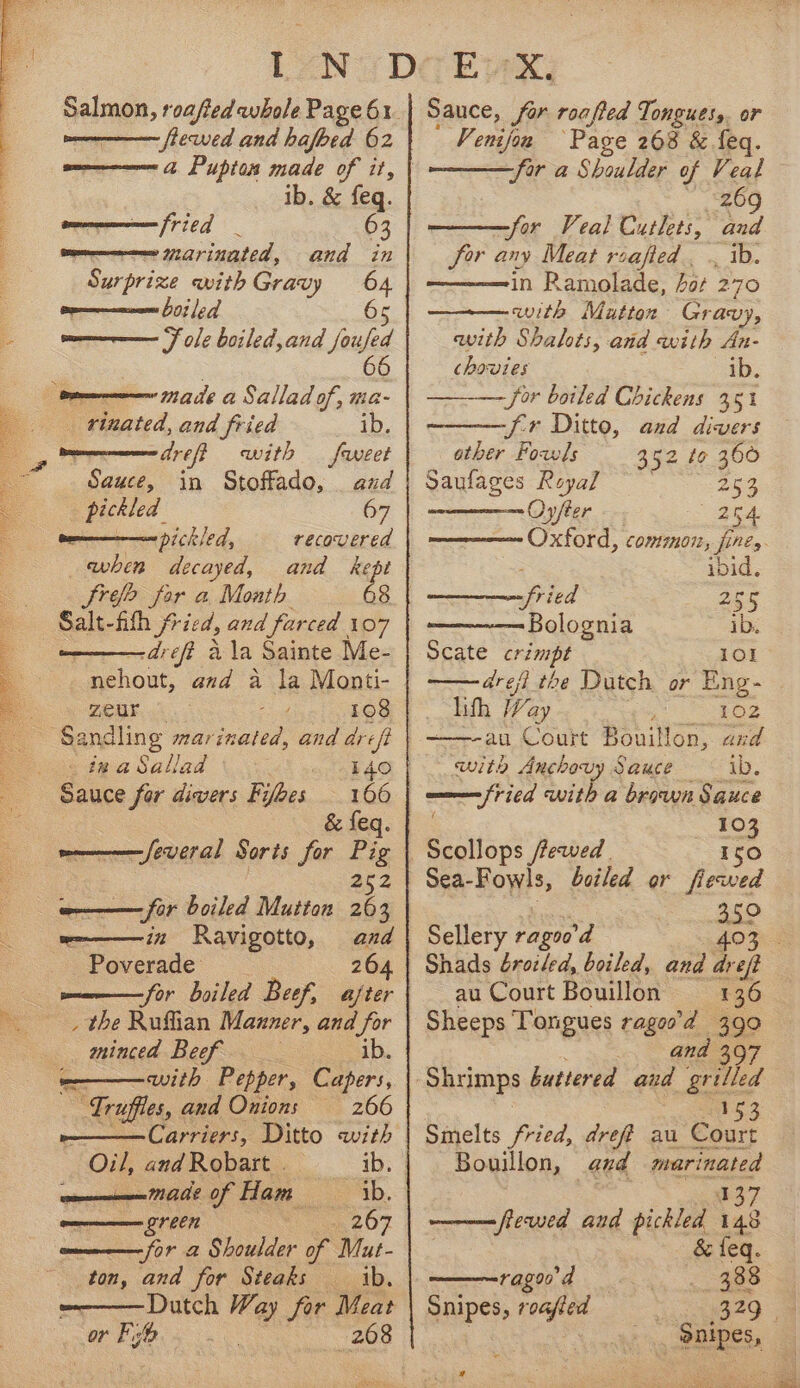 INDEX.
Salmon, roaſted whole Page 61
———ſtewed and haſhed 62
———a Pupton made of it,
ib. & ſeq.
———fried 63
———marinated, and in
Surprize with Gravy 64
———boiled 65
———Jole boiled, and ſouſed
66
———made a Sallad of, ma-
rinated, and fried ib.
———dreſt with ſweet
Sauce, in Stoffado, and
pickled 67
———pickled, recovered
when decayed, and kept
freſh for a Month 68
Salt-fiſh fried, and farced 107
———dreſt à la Sainte Me-
nehout, and à la Monti-
zeur 108
Sandling marinated, and dreſt
in a Sallad 140
Sauce for divers Fiſhes 166
& ſeq.
———ſeveral Sorts for Pig
252
———for boiled Mutton 263
———in Ravigotto, and
Poverade 264
———for boiled Beef, after
the Ruffian Manner, and for
minced Beef ib.
———with Pepper, Capers,
Truffles, and Onions 266
———Carriers, Ditto with
Oil, and Robart ib.
———made of Ham ib.
———green 267
———for a Shoulder of Mut-
ton, and for Steaks ib.
———Dutch Way for Meat
or Fiſh 268
Sauce, for roaſted Tongues, or
Veniſon Page 268 & ſeq.
———for a Shoulder of Veal
269
———for Veal Cutlets, and
for any Meat roaſted ib.
———in Ramolade, hot 270
———with Mutton Gravy,
with Shalots, and with An-
chovies ib.
———for boiled Chickens 351
———for Ditto, and divers
other Fowls 352 to 360
Sauſages Royal 253
———Oyſter 254
———Oxford, common, fine,
ibid.
———fried 255
———Bolognia ib.
Scate crimpt 101
———dreſt the Dutch or Eng-
liſh Way 102
———au Court Bouillon, and
with Anchovy Sauce ib.
———fried with a brown Sauce
103
Scollops ſtewed 150
Sea-Fowls, boiled or ſtewed
350
Sellery ragoo'd 403
Shads broiled, boiled, and dreſt
au Court Bouillon 136
Sheeps Tongues ragoo'd 390
and 397
Shrimps buttered and grilled
153
Smelts fried, dreſt au Court
Bouillon, and marinated
137
———ſtewed and pickled 148
& ſeq.
———ragoo'd 388
Snipes, roaſted 329
Snipes,